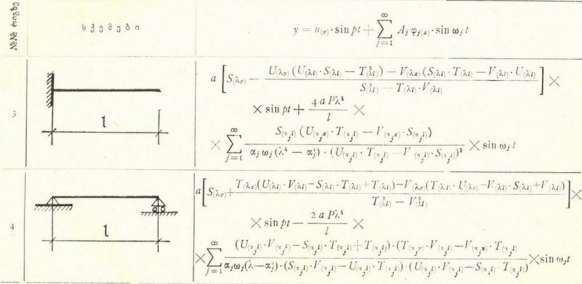 №№ რიგზე
სქემები
y = u(x)·sin pt + ∑ⱼ₌₁^∞ Aⱼ φⱼ(x)·sin ωⱼ t
3
l
a [S(λx) − (U(λx)(U(λl)·S(λl) − T²(λl)) − V(λx)(S(λl)·T(λl) − V(λl)·U(λl))) / (S²(λl) − T(λl)·V(λl))] ×
× sin pt + (4 a Pλ⁴ / l) ×
× ∑ⱼ₌₁^∞ (S(αⱼl)(U(αⱼx)·T(αⱼl) − V(αⱼx)·S(αⱼl))) / (αⱼωⱼ(λ⁴ − αⱼ⁴)·(U(αⱼl)·T(αⱼl) − V(αⱼl)·S(αⱼl))²) × sin ωⱼ t
4
l
a [S(λx) + (T(λx)(U(λl)·V(λl) − S(λl)·T(λl) + T(λl)) − V(λx)(T(λl)·U(λl) − V(λl)·S(λl) + V(λl))) / (T²(λl) − V²(λl))] ×
× sin pt − (2 a Pλ⁴ / l) ×
× ∑ⱼ₌₁^∞ ((U(αⱼl)·V(αⱼl) − S(αⱼl)·T(αⱼl) + T(αⱼl))·(T(αⱼx)·V(αⱼl) − V(αⱼx)·T(αⱼl))) / (αⱼωⱼ(λ − αⱼ⁴)·(S(αⱼl)·V(αⱼl) − U(αⱼl)·T(αⱼl))·(U(αⱼl)·V(αⱼl) − S(αⱼl)·T(αⱼl))) × sin ωⱼt